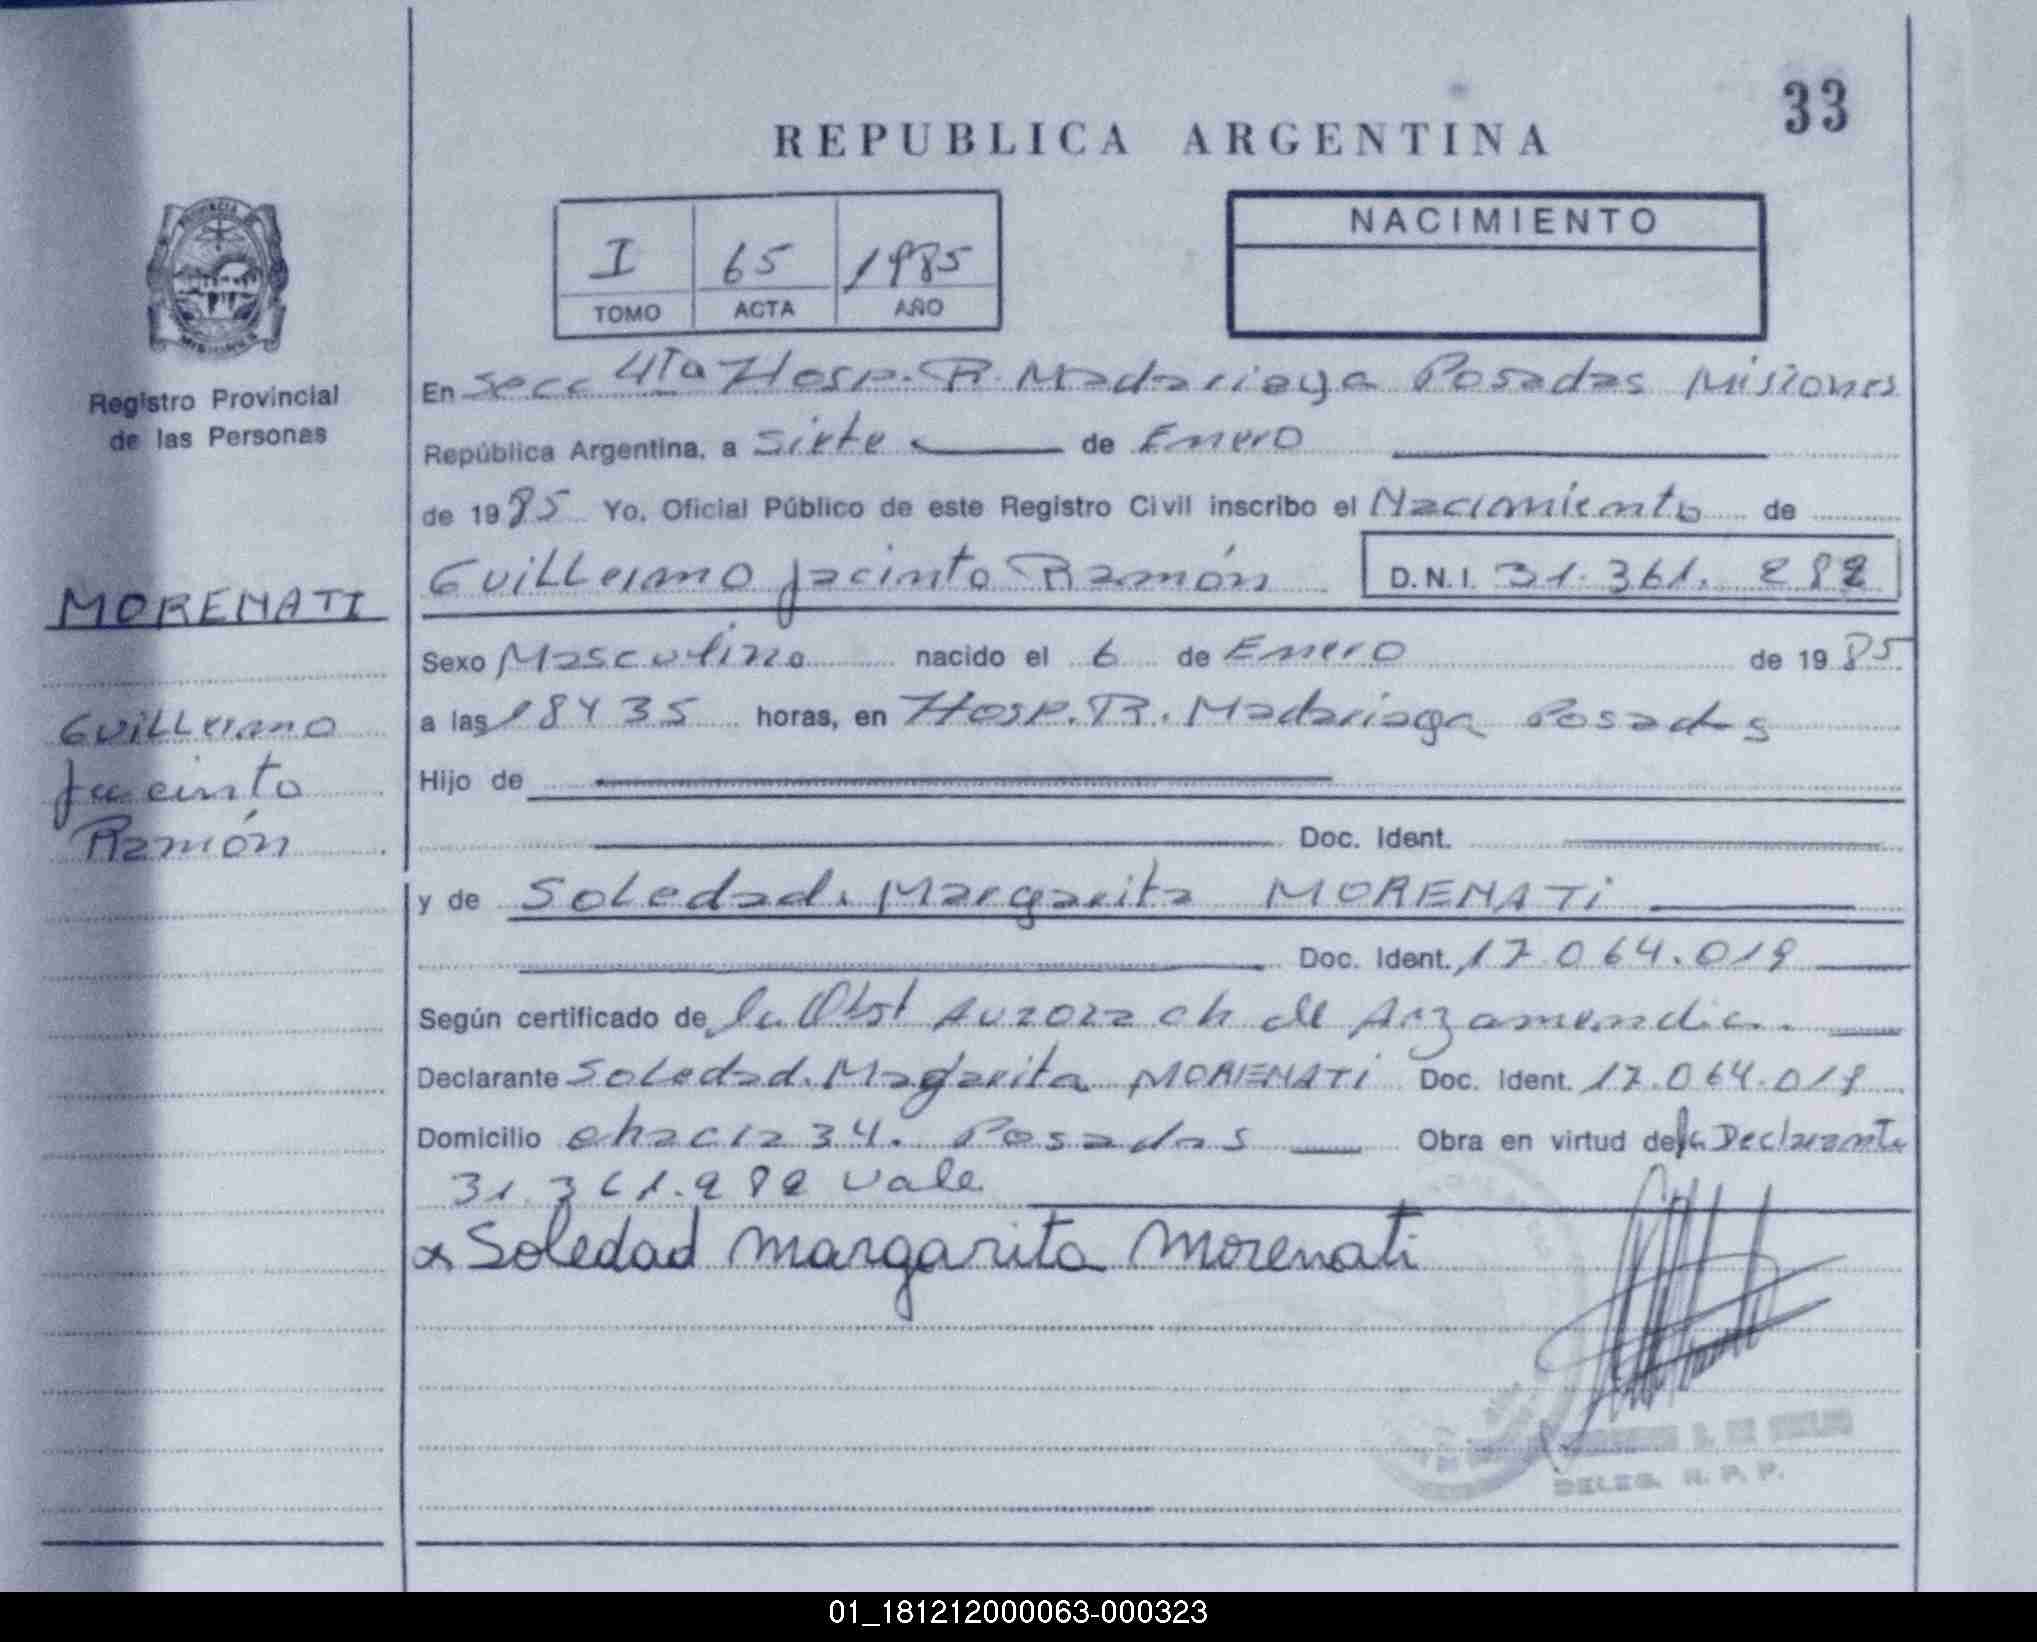 33
REPUBLICA ARGENTINA
I 65 1985
TOMO ACTA AÑO
NACIMIENTO
Registro Provincial
de las Personas
MORENATI
Guillermo
Jacinto
Ramón
En Secc 4Ta Hosp. R. Madariaga Posadas Misiones
República Argentina, a Siete de Enero
de 1985 Yo, Oficial Público de este Registro Civil inscribo el Nacimiento de
Guillermo Jacinto Ramón D.N.I. 31.361.282
Sexo Masculino nacido el 6 de Enero de 1985
a las 18 y 35 horas, en Hosp. R. Madariaga Posadas
Hijo de
Doc. Ident.
y de Soledad Margarita MORENATi
Doc. Ident. 17.064.019
Según certificado de la Obst Aurora ch de Arzamendia.
Declarante Soledad Margarita MORENATi Doc. Ident. 17.064.019
Domicilio chacra 34. Posadas Obra en virtud de la Declarante
31.361.282 vale
Soledad margarita Morenati
DELEG. R. P. P.
01_181212000063-000323